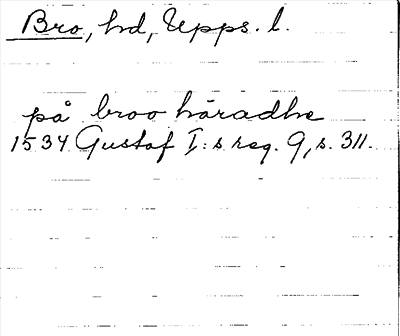 Bro, hd, Upps. l.
på broo häradhe
1534 Gustaf I:s reg. 9, s. 311.